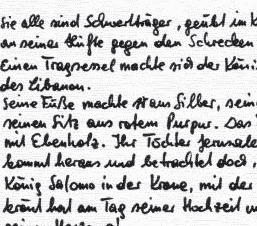 Sie alle sind Schwertträger, geübt im K
an seiner Hüfte gegen den Schrecken
Einen Tragsessel machte sich der Köni
des Libanon.
Seine Füße machte er aus Silber, sein
seinen Sitz aus rotem Purpur. Das
mit Ebenholz. Ihr Töchter Jerusale
kommt heraus und betrachtet doch,
König Salomo in der Krone, mit der
krönt hat am Tag seiner Hochzeit u